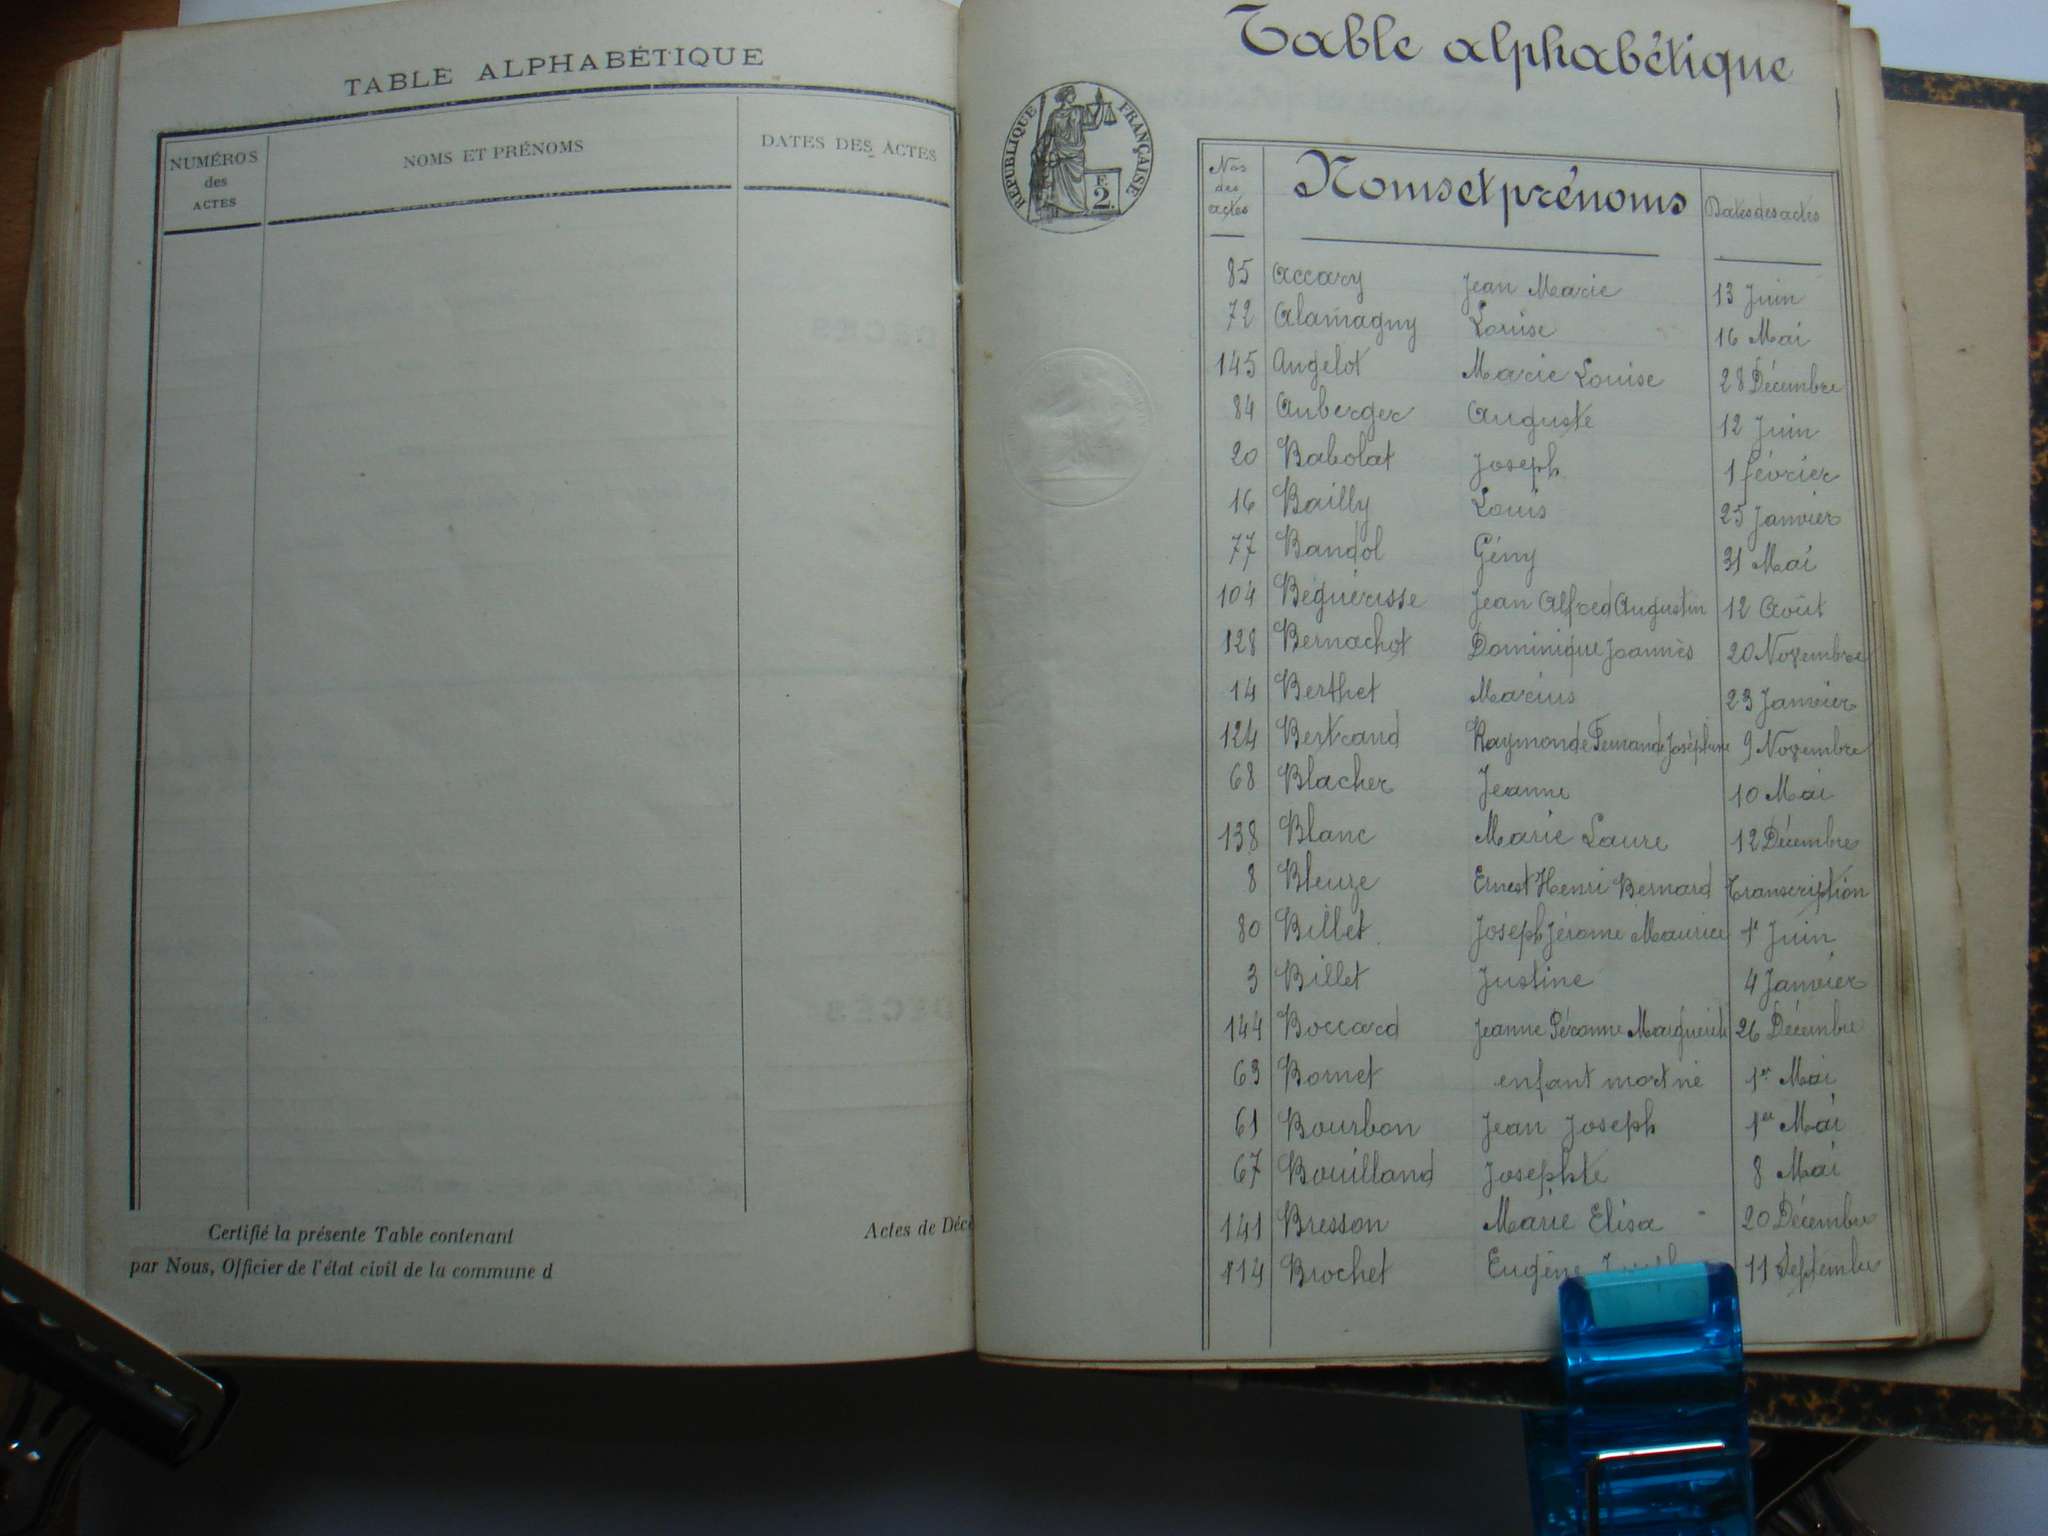 TABLE ALPHABÉTIQUE
NUMÉROS
des
ACTES
NOMS ET PRÉNOMS
DATES DES ACTES
Certifié la présente Table contenant
Actes de Décè
par Nous, Officier de l'état civil de la commune d
Table alphabétique
RÉPUBLIQUE FRANÇAISE
F.
2.
Nos
des
actes
Noms et prénoms
Dates des actes
85 Accary Jean Marie 13 Juin
72 Alamagny Louise 16 Mai
145 Angelot Marie Louise 28 Décembre
84 Auberger Auguste 12 Juin
20 Babolat Joseph 1 février
16 Bailly Louis 25 Janvier
77 Bandol Gény 31 Mai
104 Béguérisse Jean Alfred Augustin 12 Août
128 Bernachot Dominique Joannès 20 Novembre
14 Berthet Marius 23 Janvier
124 Bertrand Raymonde Fernande Joséphine 9 Novembre
68 Blacher Jeanne 10 Mai
138 Blanc Marie Laure 12 Décembre
8 Bleuze Ernest Henri Bernard Transcription
80 Billet Joseph Jérome Maurice 1e Juin
3 Billet Justine 4 Janvier
144 Boccard Jeanne Péronne Marguerite 26 Décembre
63 Bornet enfant mort né 1er Mai
61 Bourbon Jean Joseph 1er Mai
67 Bouilland Josephte 8 Mai
141 Bresson Marie Elisa 20 Décembre
114 Brochet Eugène 11 Septembre